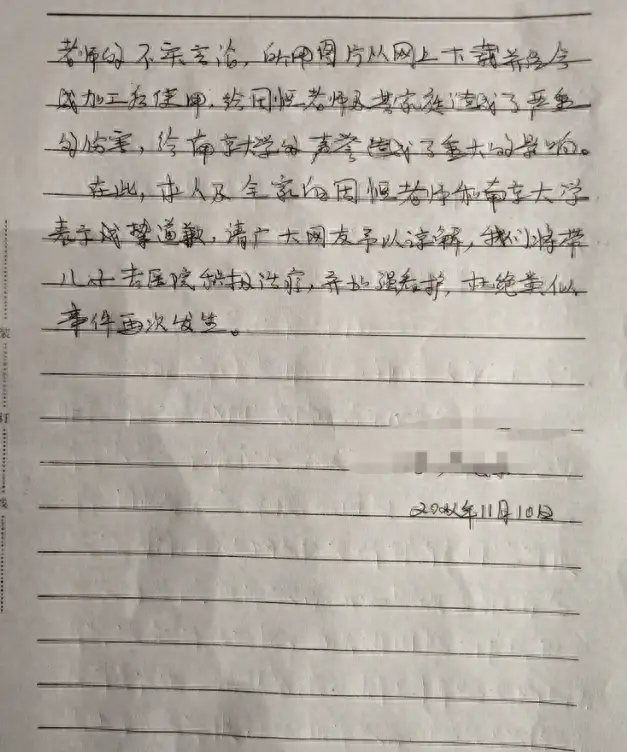 老师的不实言论，所用图片从网上下载并经合
成加工和使用，给周恒老师及其家族造成了严重
的伤害，给南京大学的声誉造成了重大的影响。
在此，本人及全家向周恒老师和南京大学
表示诚挚道歉，请广大网友予以谅解，我们将带
儿子去医院积极治疗，并加强看护，杜绝类似
事件再次发生。
年11月10日
装
订
线